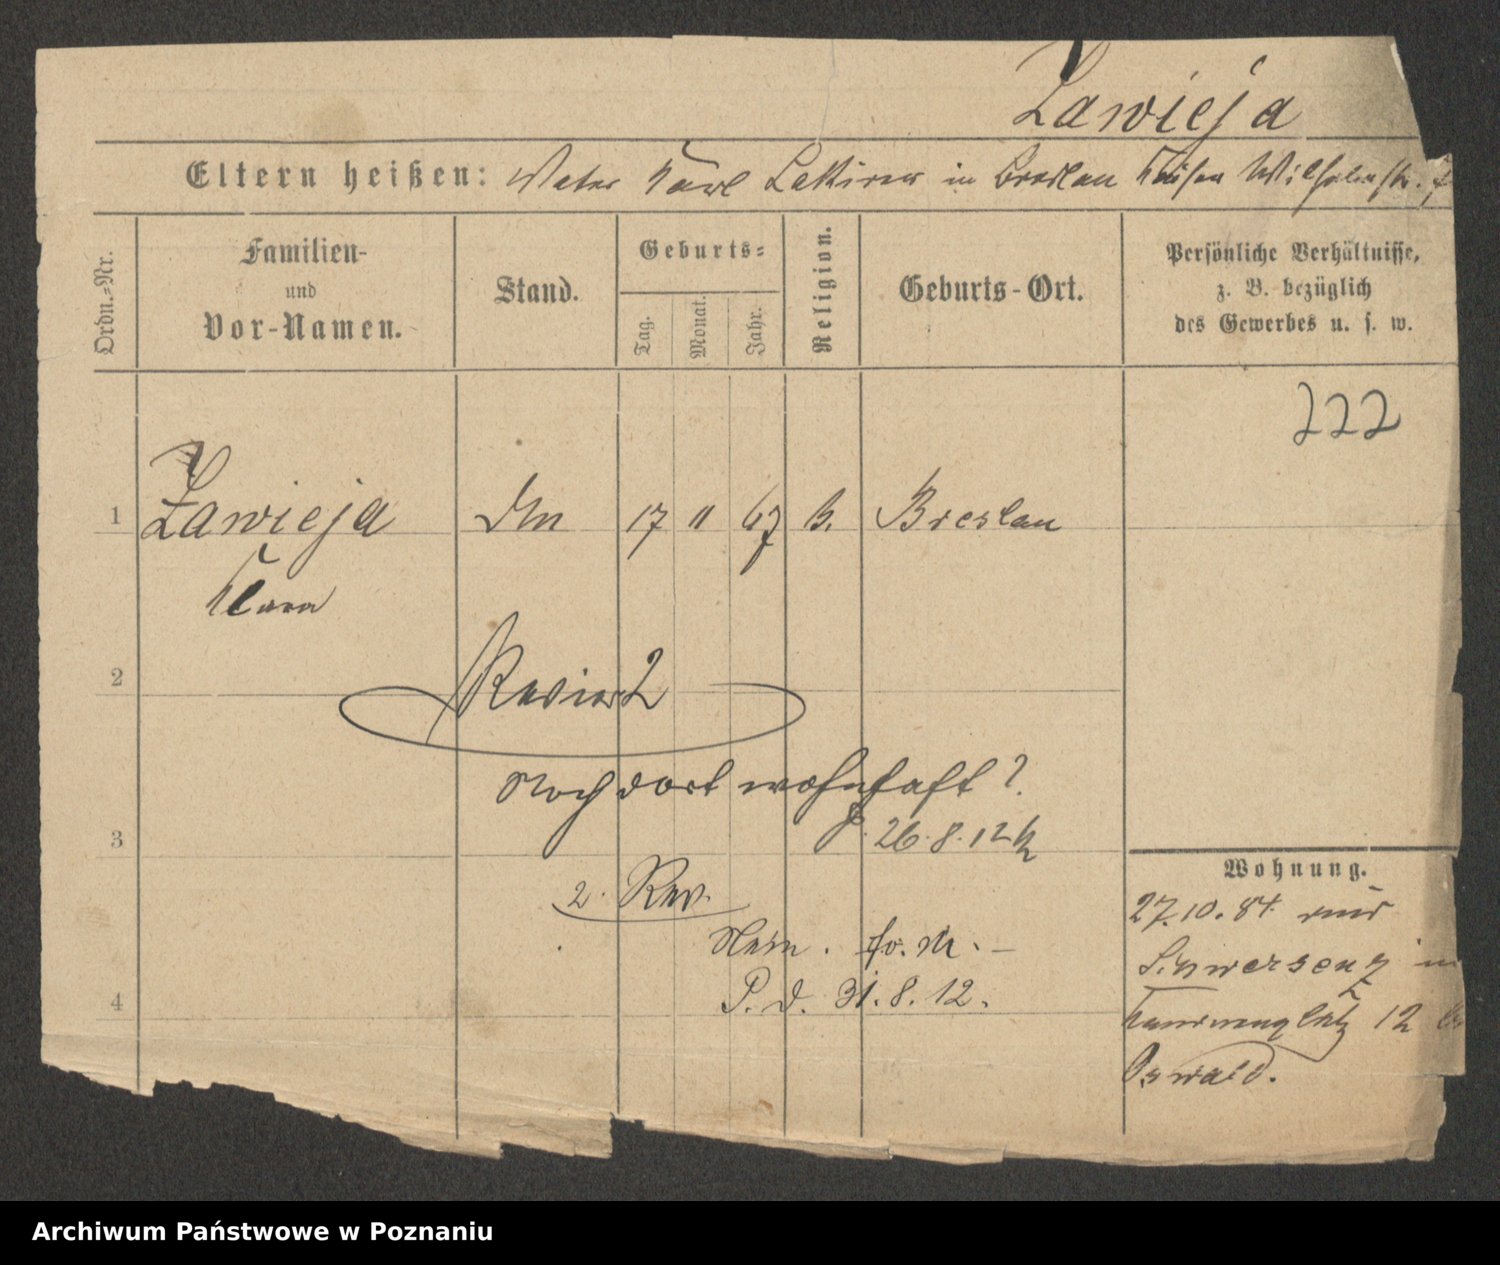 Zawieja
Eltern heißen: Vater Karl Lakirer in Breslau Kaiser Wilhelmstr. 7
Ordn.-Nr.
Familien-
und
Vor-Namen.
Stand.
Geburts-
Tag.
Monat.
Jahr.
Religion.
Geburts-Ort.
Persönliche Verhältnisse,
z. B. bezüglich
des Gewerbes u. s. w.
222
1 Zawieja 17 11 67 k. Breslau
Klara
2 Revier 2
Noch dort wohnhaft?
26.8.12
3
2. Rev.
Nein.
P. d. 31.8.12.
4
Wohnung.
27.10.84 aus
Schwersenz in
12
Oswald.
Archiwum Państwowe w Poznaniu